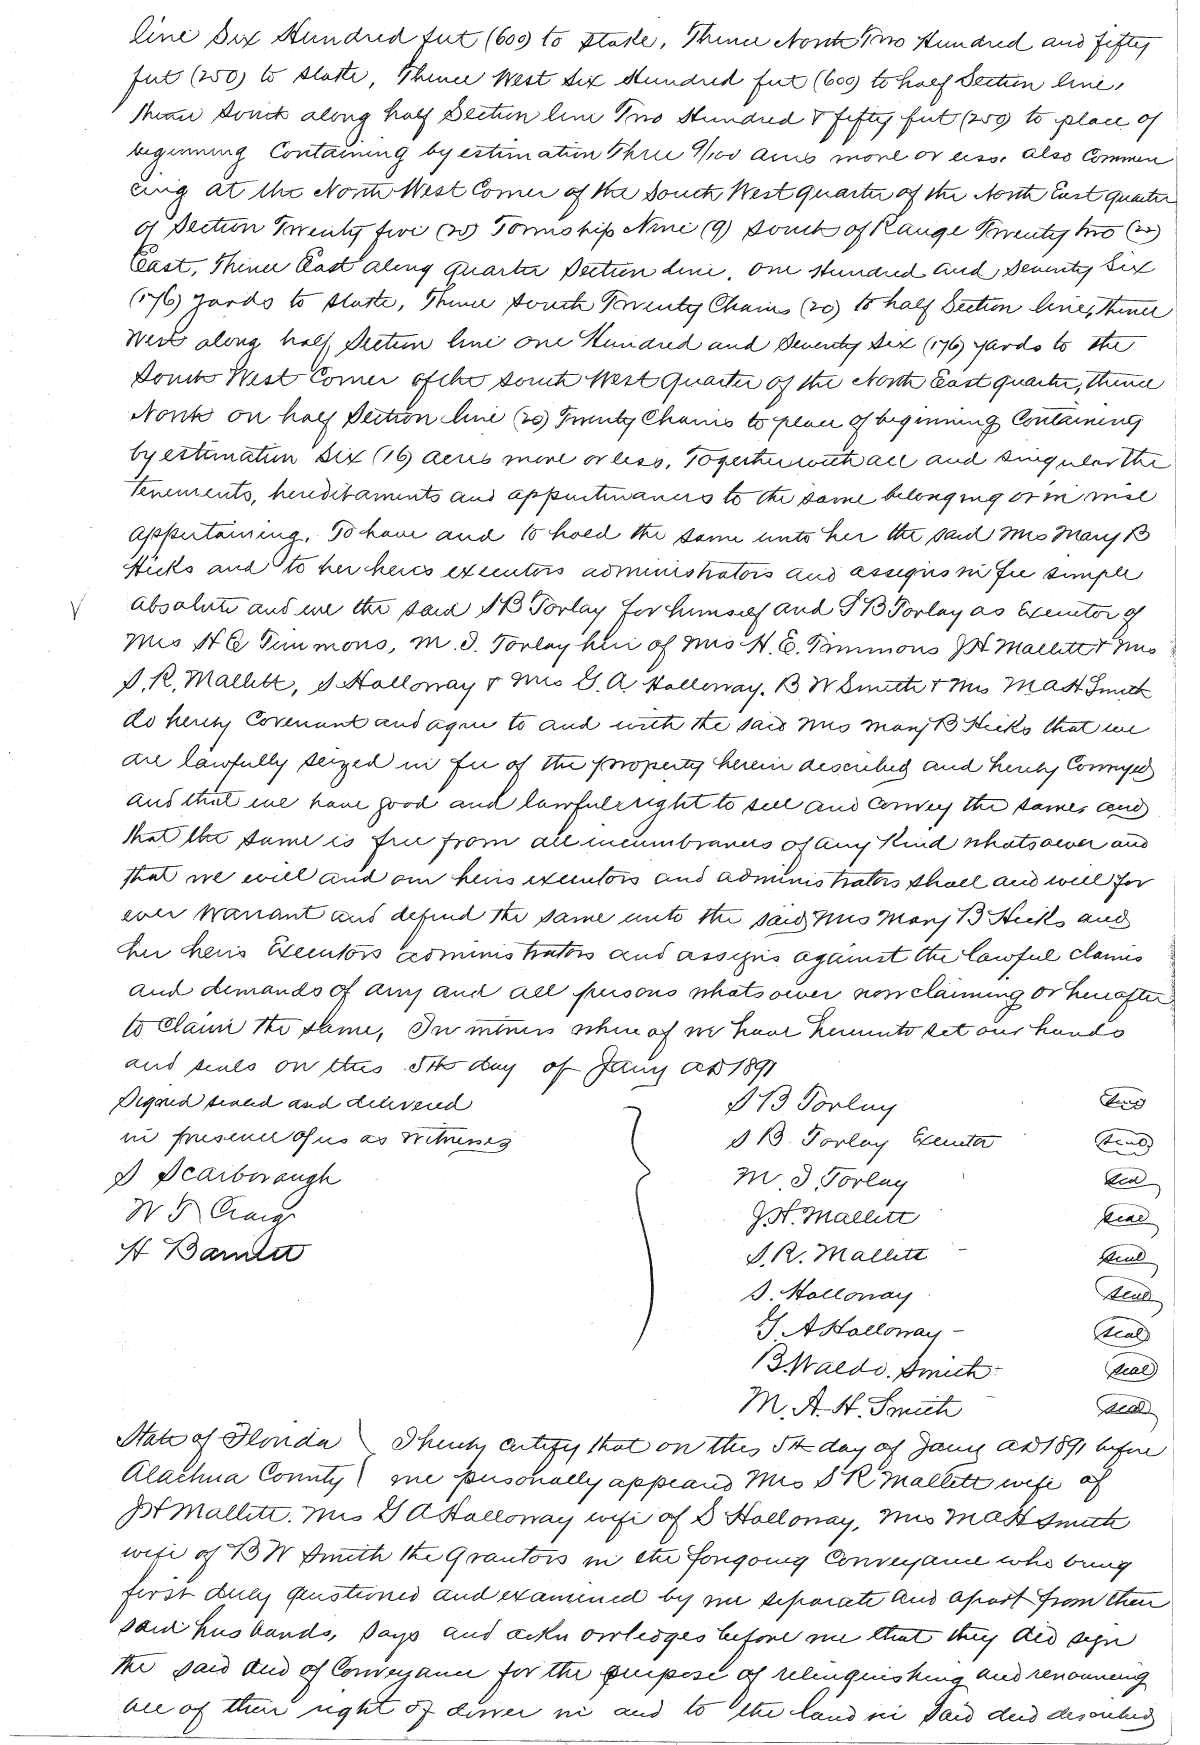 line Six Hundred feet (600) to stake, Thence North Two Hundred and fifty
feet (250) to stake, Thence West Six Hundred feet (600) to half Section line,
thence South along half Section line Two Hundred & fifty feet (250) to place of
beginning Containing by estimation Three 9/100 acres more or less. also Commen
cing at the North West Corner of the South West quarter of the North East quarter
of Section Twenty five (25) Township Nine (9) South of Range Twenty two (22)
East, Thence East along quarter Section line, one Hundred and Seventy Six
(176) yards to stake, Thence South Twenty Chains (20) to half Section line, thence
West along half Section line one Hundred and Seventy Six (176) yards to the
South West Corner of the South West quarter of the North East quarter, thence
North on half Section line (20) Twenty Chains to place of beginning Containing
by estimation Six (16) acres more or less, Together with all and singular the
tenements, hereditaments and appurtenances to the same belonging or in wise
appertaining. To have and to hold the same unto her the said Mrs Mary B
Hicks and to her heirs executors administrators and assigns in fee simple
absolute and we the said S B Torlay for himself and S B Torlay as Executor of
Mrs H E Timmons, M. I. Torlay heir of Mrs H. E. Timmons J H Mallett & Mrs
S. R. Mallett, S Holloway & Mrs G. A Holloway. B W Smith & Mrs M A H Smith
do hereby Covenant and agree to and with the said Mrs Mary B Hicks that we
are lawfully seized in fee of the property herein described and hereby Conveyed
and that we have good and lawful right to sell and convey the same, and
that the same is free from all incumbrances of any Kind whatsoever and
that we will and our heirs executors and administrators shall and will for
ever Warrant and defend the same unto the said Mrs Mary B Hicks and
her heirs Executors administrators and assigns against the lawful claims
and demands of any and all persons whatsoever now claiming or hereafter
to claim the same, In witness where of we have hereunto set our hands
and seals on this 5th day of Jany AD 1891
Signed sealed and delivered
in presence of us as Witnesses
S Scarborough
W T Craig
H Barnett
S B Torlay seal
S B. Torlay Executor seal
M. I. Torlay seal
J. H. Mallett seal
S. R. Mallett seal
S. Holloway seal
G. A Holloway seal
B. Waldo. Smith seal
M. A. H. Smith seal
State of Florida I hereby certify that on this 5th day of Jany AD 1891 before
Alachua County me personally appeared Mrs S R Mallett wife of
J H Mallett. Mrs G A Holloway wife of S Holloway, Mrs M A H Smith
wife of B W Smith the Grantors in the foregoing Conveyance who being
first duly questioned and examined by me separate and apart from their
said husbands, says and acknowledges before me that they did sign
the said deed of Conveyance for the purpose of relinquishing and renouncing
all of their right of dower in and to the land in said deed described